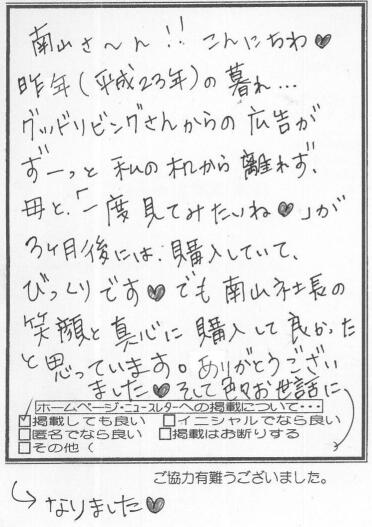 南山さ〜ん!! こんにちわ♥
昨年(平成23年)の暮れ...
グッドリビングさんからの広告が
ずーっと 私の机から離れず、
母と、「一度見てみたいね♥」が
3ヶ月後には、購入していて、
びっくりです♥ でも 南山社長の
笑顔と真心に購入して良かった
と思っています。ありがとうござい
ました♥ そして色々お世話に
ホームページ・ニュースレターへの掲載について・・・
☑掲載しても良い □イニシャルでなら良い
□匿名でなら良い □掲載はお断りする
□その他 (            )
ご協力有難うございました。
→なりました♥